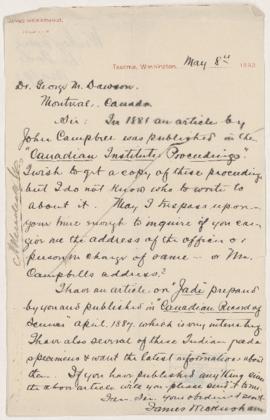 Tacoma, Washington, May 8th 1893
Dr. George M. Dawson
Montreal, Canada
Sir: In 1881 an article by
John Campbell was published in the
"Canadian Institute Proceedings"
I wish to get a copy of these proceedings
but I do not know who to write to
about it. May I trespass upon
your time enough to inquire if you can
give me the address of the officer or
person in charge of same - or Mr.
Campbells address?
I have an article on "Jade" prepared
by you and published in "Canadian Record of
Science" April 1887. which is very interesting.
I have also several of these Indian jade
specimens & want the latest information about
them. If you have published anything since
the above article will you please send it to me.
I am Sir your obedient servt.
James